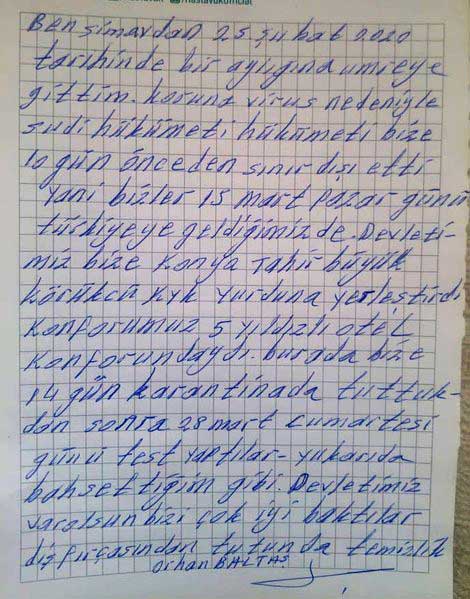 hastavukofficial
Ben simavdan 25 şubat 2020
tarihinde bir aylığına umreye
gittim. korunz virus nedeniyle
sudi hükümeti hükümeti bize
10 gün önceden sınır dışı etti
yani bizler 15 mart pazar günü
türkiyeye geldiğimizde. Devleti-
miz bize Konya Tahir büyük
körükcü kyk yurduna yerleştirdi
Konforumuz 5 yıldızlı otel
Konforundaydı. burada bize
14 gün karantinada tuttuk-
dan sonra 28 mart cumartesi
günü test yaptılar-yukarıda
bahsettiğim gibi. Devletimiz
varolsun bizi çok iyi baktılar
diş fırçasından tutunda temizlik
Orhan BALTAŞ